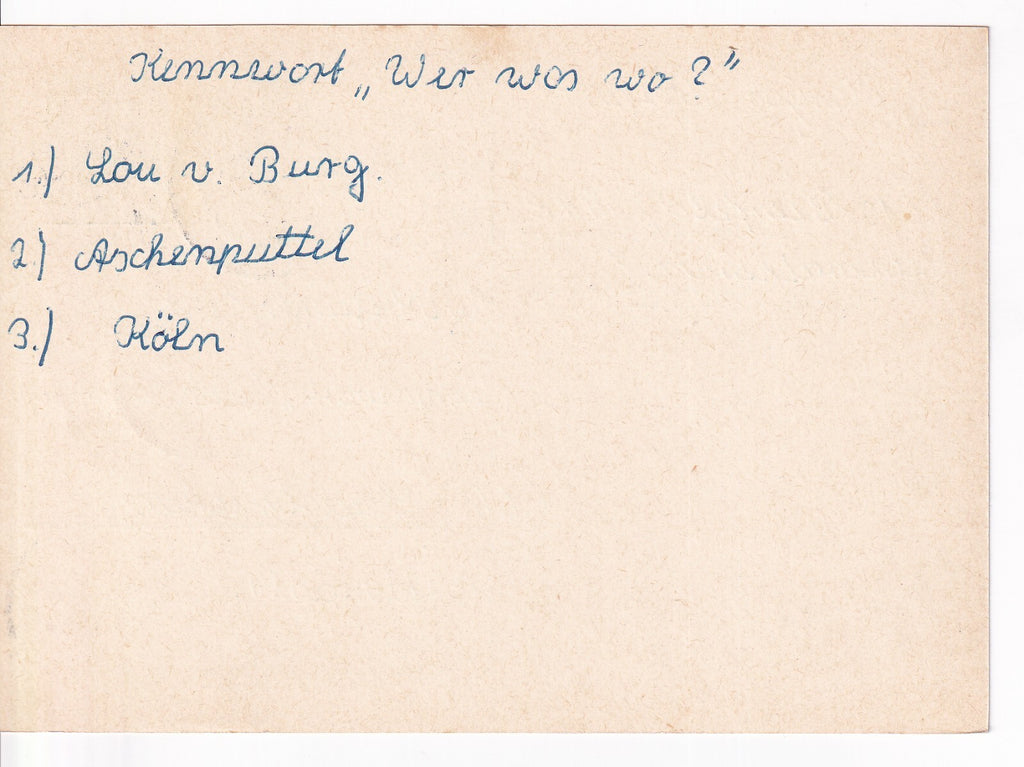 Kennwort „Wer was wo?"
1.) Lou v. Burg.
2.) Aschenputtel
3.) Köln